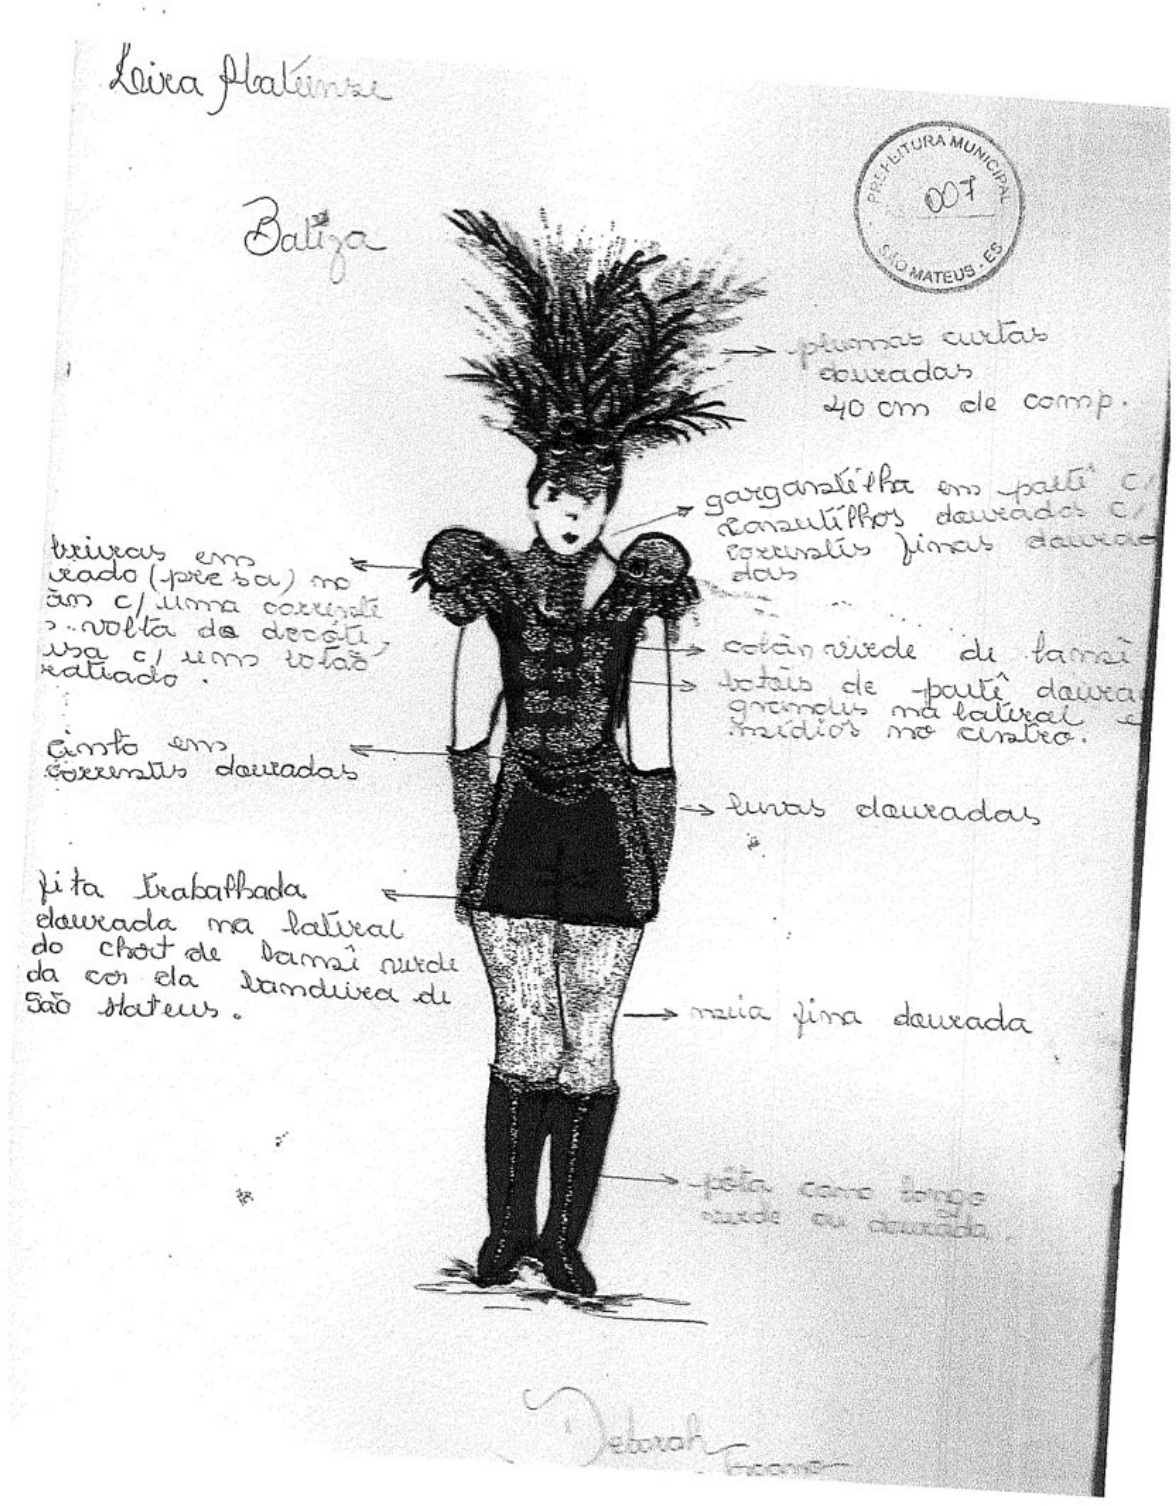 Lira Mateense
PREFEITURA MUNICIPAL
007
SÃO MATEUS - ES
Baliza
plumas curtas
douradas
40 cm de comp.
gargantilha em paitê c/
canutilhos dourados c/
correntes finas doura
das
em
rado (presa) no
c/ uma corrente
volta do decote,
c/ um botão
colãn verde de lamê
botões de paitê doura
grandes na lateral e
médios no centro.
cinto em
correntes douradas
luvas douradas
fita trabalhada
dourada na lateral
do chort de lamê verde
da cor da bandeira de
São Mateus.
meia fina dourada
bóta cano longo
verde ou dourada.
Deborah